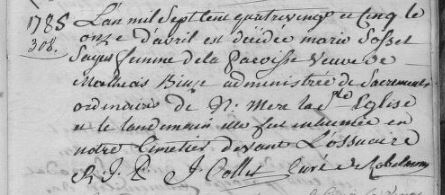 1785
308.
L'an mil Sept Cent quatre vingt et Cinq le
onze d'avril est décédée marie Josset
femme de la Paroisse Veuve de
Mathieu administrée des Sacrements
ordinaires de N. Mere la Ste Eglise
et le landemain elle fut inhumée en
notre Cimetier devant L'ossuaire
J. Collet Curé de